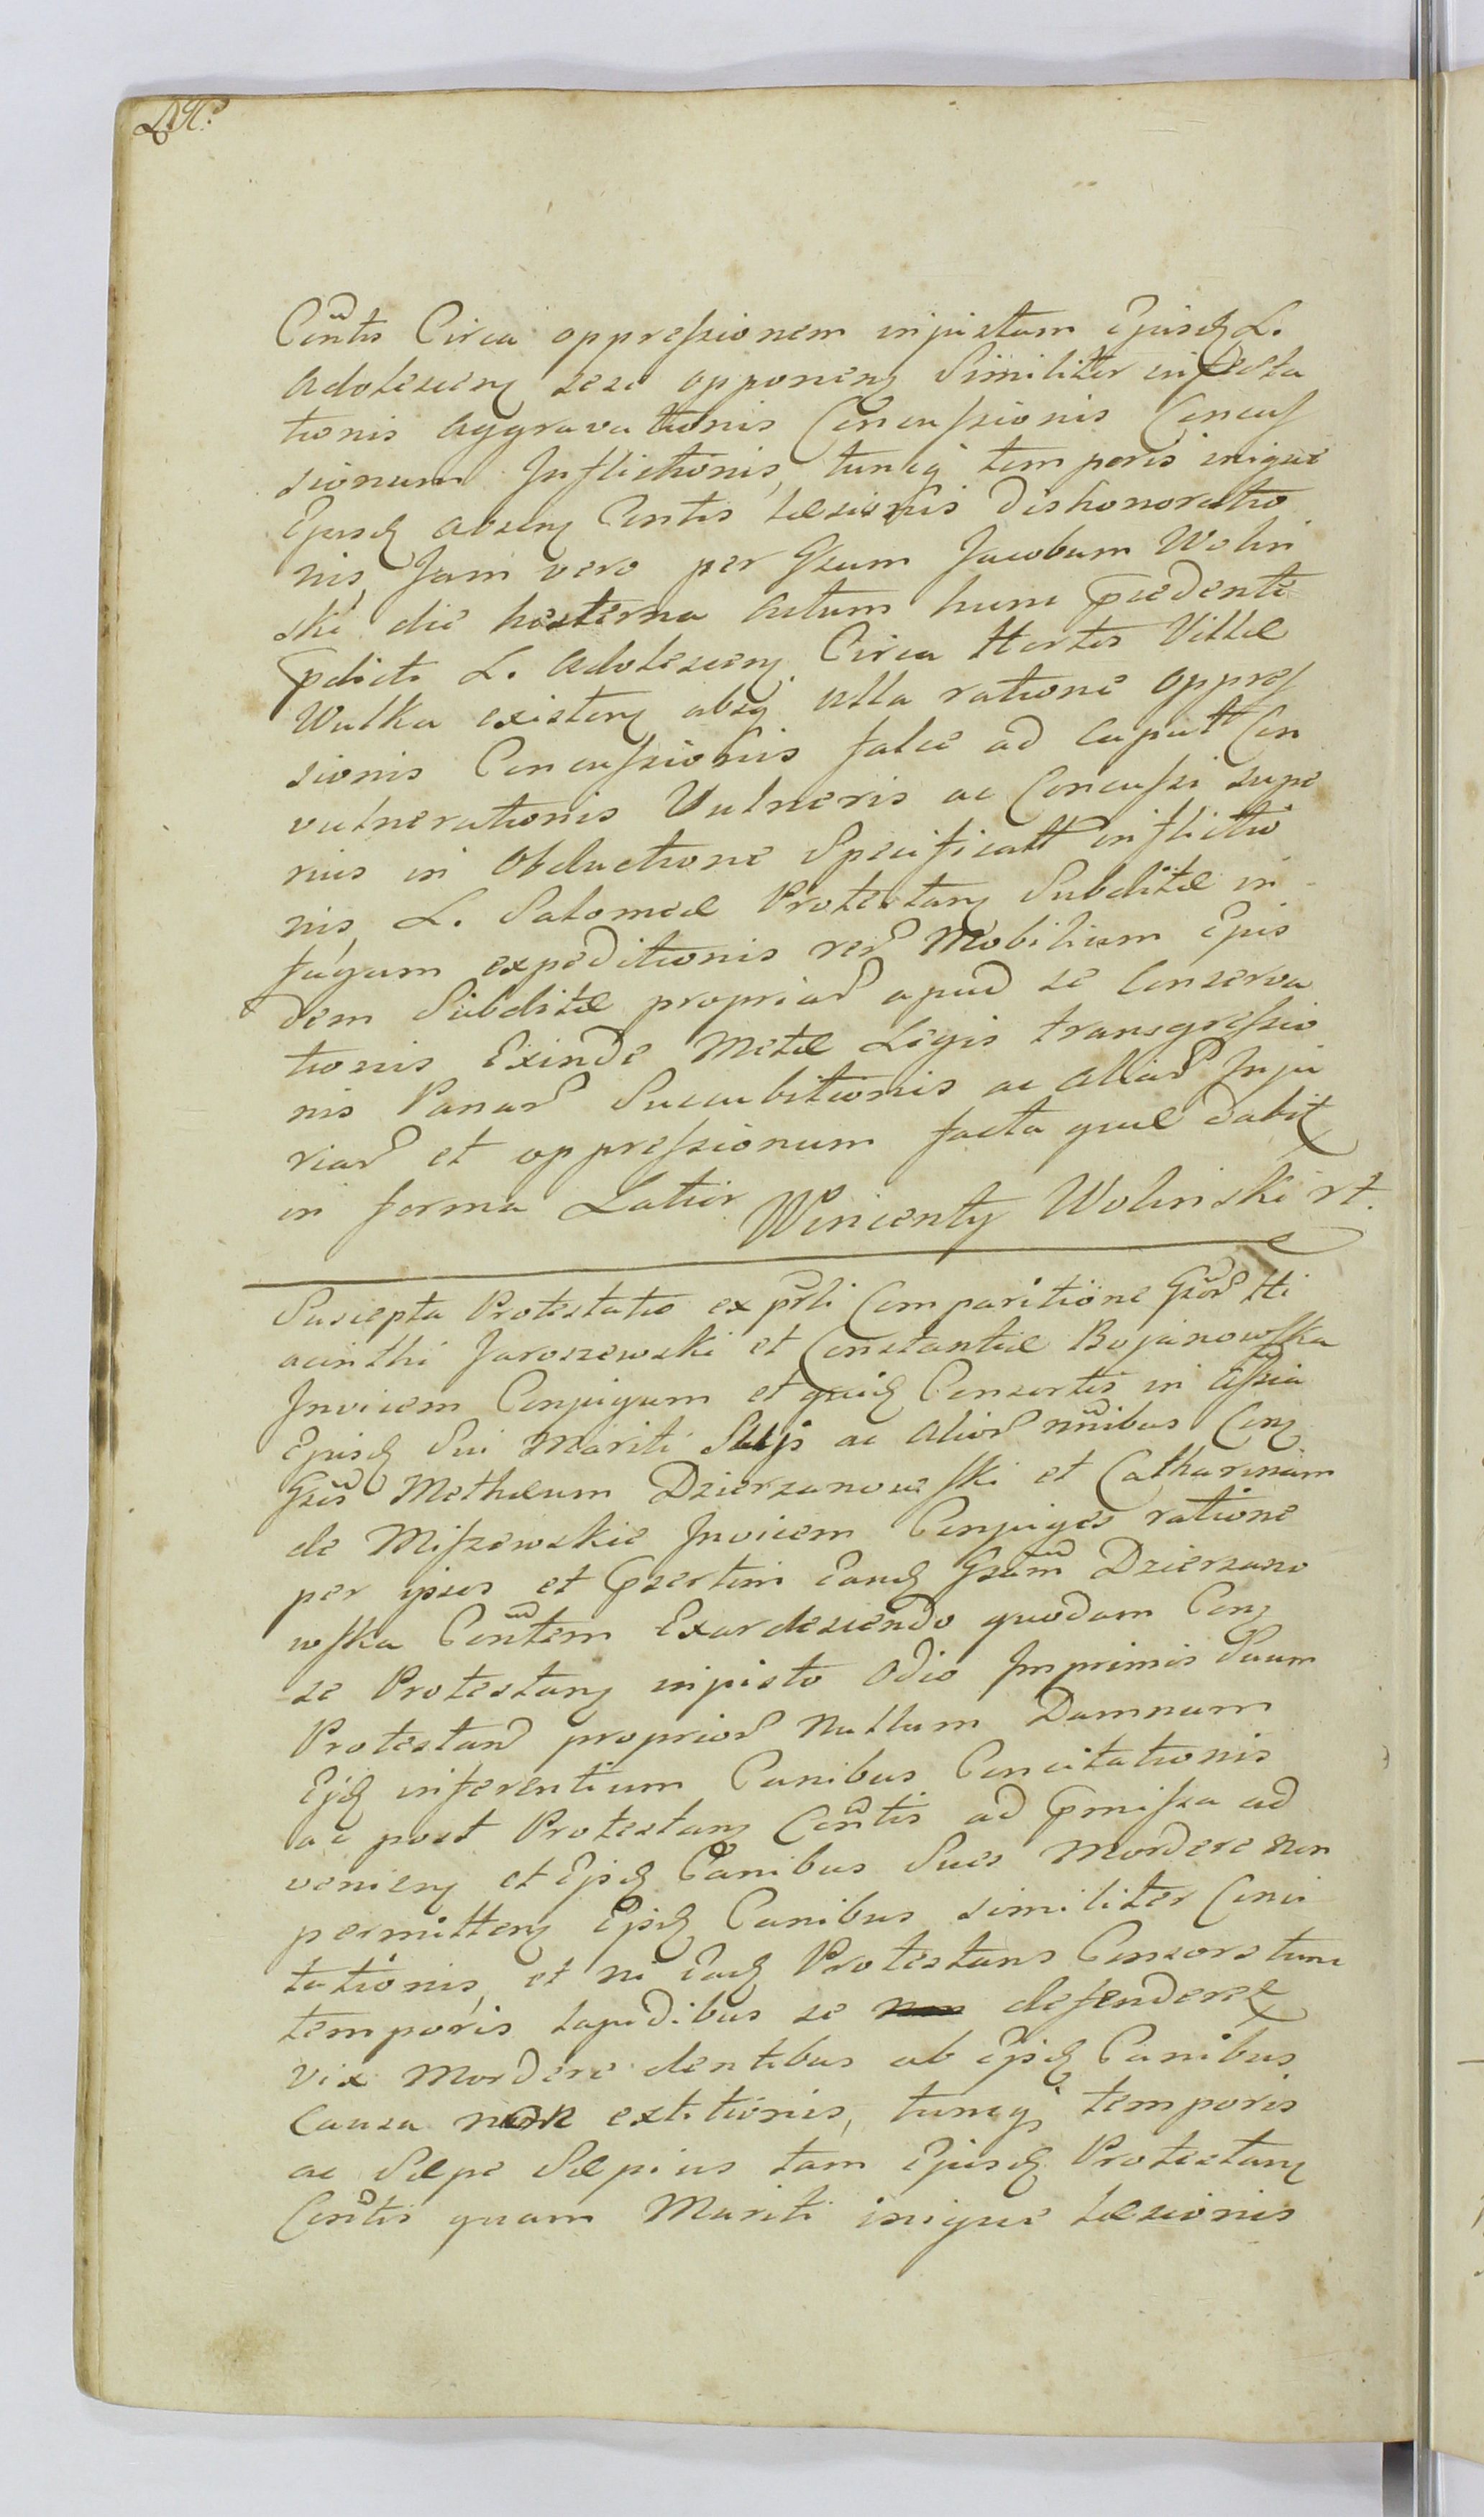 Contis Circa oppressionem injustam Ejusq L.
Adolescen sese opponen Similiter infecta
tionis aggravationis Concussionis Concus
sionum Inflictionis, tuncq temporis inique
Ejusq absen Contis Læsionis Dishonoratio
nis, Jam vero per Gsum Jacobum Wolin
ski die hesterna actum hunc præcedente
pdicti L. Adolescen Circa Hortos Villæ
Wulka existen absq ulla ratione oppres
sionis Concussionis falce ad caput Con
vulnerationis Vulneris ac Concussi supe
rius in Obductione Specificatt inflictio
nis, L. Salomeæ Protestan Subditæ in
fugam expeditionis rer Mobilium Ejus
dem Subditæ propriar apud se Conserva
tionis Exinde Metæ Legis transgressio
nis Pœnar Succubitionis ac aliar Inju
riar et oppressionum facta quæ dabit
in forma Latior Wincenty Wolinski rt.
Suscepta Protestatio ex psli Comparitione Gsor Hi
acinthi Jaroszewski et Constantiæ Bojanowska
Invicem Conjugum et quidq Consortis in Assia
Ejusq Sui Mariti Suis ac alior nnibus Con
Gsos Mathæum Dzierzanowski et Catharinam
de Miszewskie Invicem Conjuges ratione
per ipsos et psertim eandq Gsam Dzierzano
wska Contem Exardescendo quodam Con
se Protestan injusto Odio Imprimis Suum
Protestan proprior Nullum Damnum
Ejsq inferentium Canibus Concitationis
ac post Protestan Contis ad pmissa ad
venien et Ejsq Canibus Sues Mordere non
permitten Ejsq Canibus similiter Conci
tationis, et ni Eadq Protestans Consors tunc
temporis lapidibus se defenderet
vix Mordere dentibus ab Ejsq Canibus
Causa non extitionis, tuncq temporis
ac Sæpe Sæpius tam Ejusq Protestan
Contis quam Mariti inique Læsionis